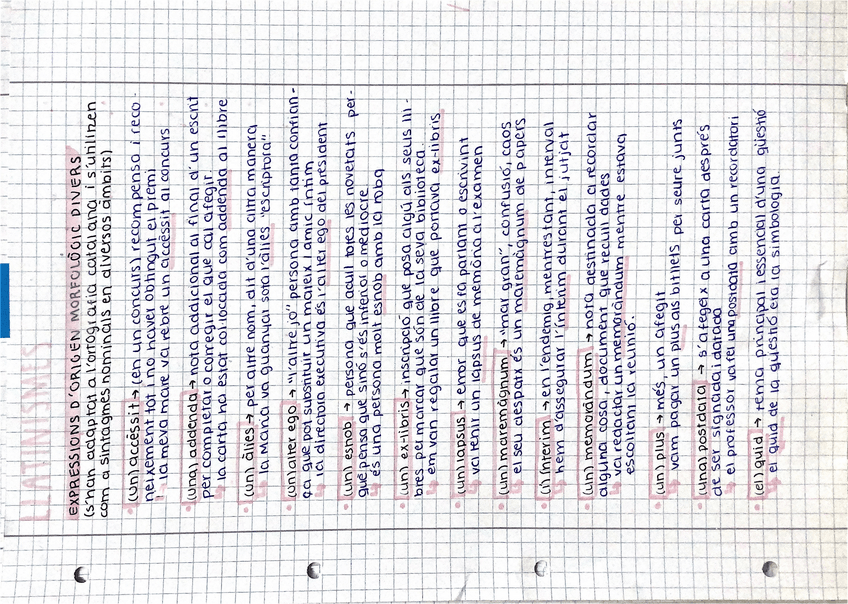 LLATINISMES
EXPRESSIONS D'ORIGEN MORFOLÒGIC DIVERS
(s'han adaptat a l'ortografia catalana i s'utilitzen
com a sintagmes nominals en diversos àmbits)
(un) accèssit → (en un concurs) recompensa i reco-
neixement tot i no haver obtingut el premi
la meva mare va rebre un accèssit al concurs
(una) addenda → nota addicional al final d'un escrit
per completar o corregir el que cal afegir.
la carta ha estat col·locada com addenda al llibre
(un) àlies → per altre nom, dit d'una altra manera
la Maria va guanyar sota l'àlies "escriptora"
(un) alter ego → "l'altre jo" persona amb tanta confian-
ça que pot substituir un mateix / amic íntim
la directora executiva és l'alter ego del president
(un) esnob → persona que adull totes les novetats per-
què pensa que sinó s'és inferior o mediocre
és una persona molt esnob amb la roba
(un) ex-libris → inscripció que posa algú als seus lli-
bres per marcar que són de la seva biblioteca.
em van regalar un llibre que portava ex-libris
(un) lapsus → error que es fa parlant o escrivint
va tenir un lapsus de memòria a l'examen
(un) maremàgnum → "mar gran", confusió, caos
el seu despatx és un maremàgnum de papers
(l') ínterim → en l'endemig, mentrestant, interval
hem d'assegurar l'ínterim durant el jutjat
(un) memoràndum → nota destinada a recordar
alguna cosa, document que recull dades
va redactar un memoràndum mentre estava
escoltant la reunió.
(un) plus → més, un afegit
vam pagar un plus als bitllets per seure junts
(una) postdata → s'afegeix a una carta després
de ser signada i datada
el professor va fer una postdata amb un recordatori
(el) quid → tema principal i essencial d'una qüestió
el quid de la qüestió era la simbologia.